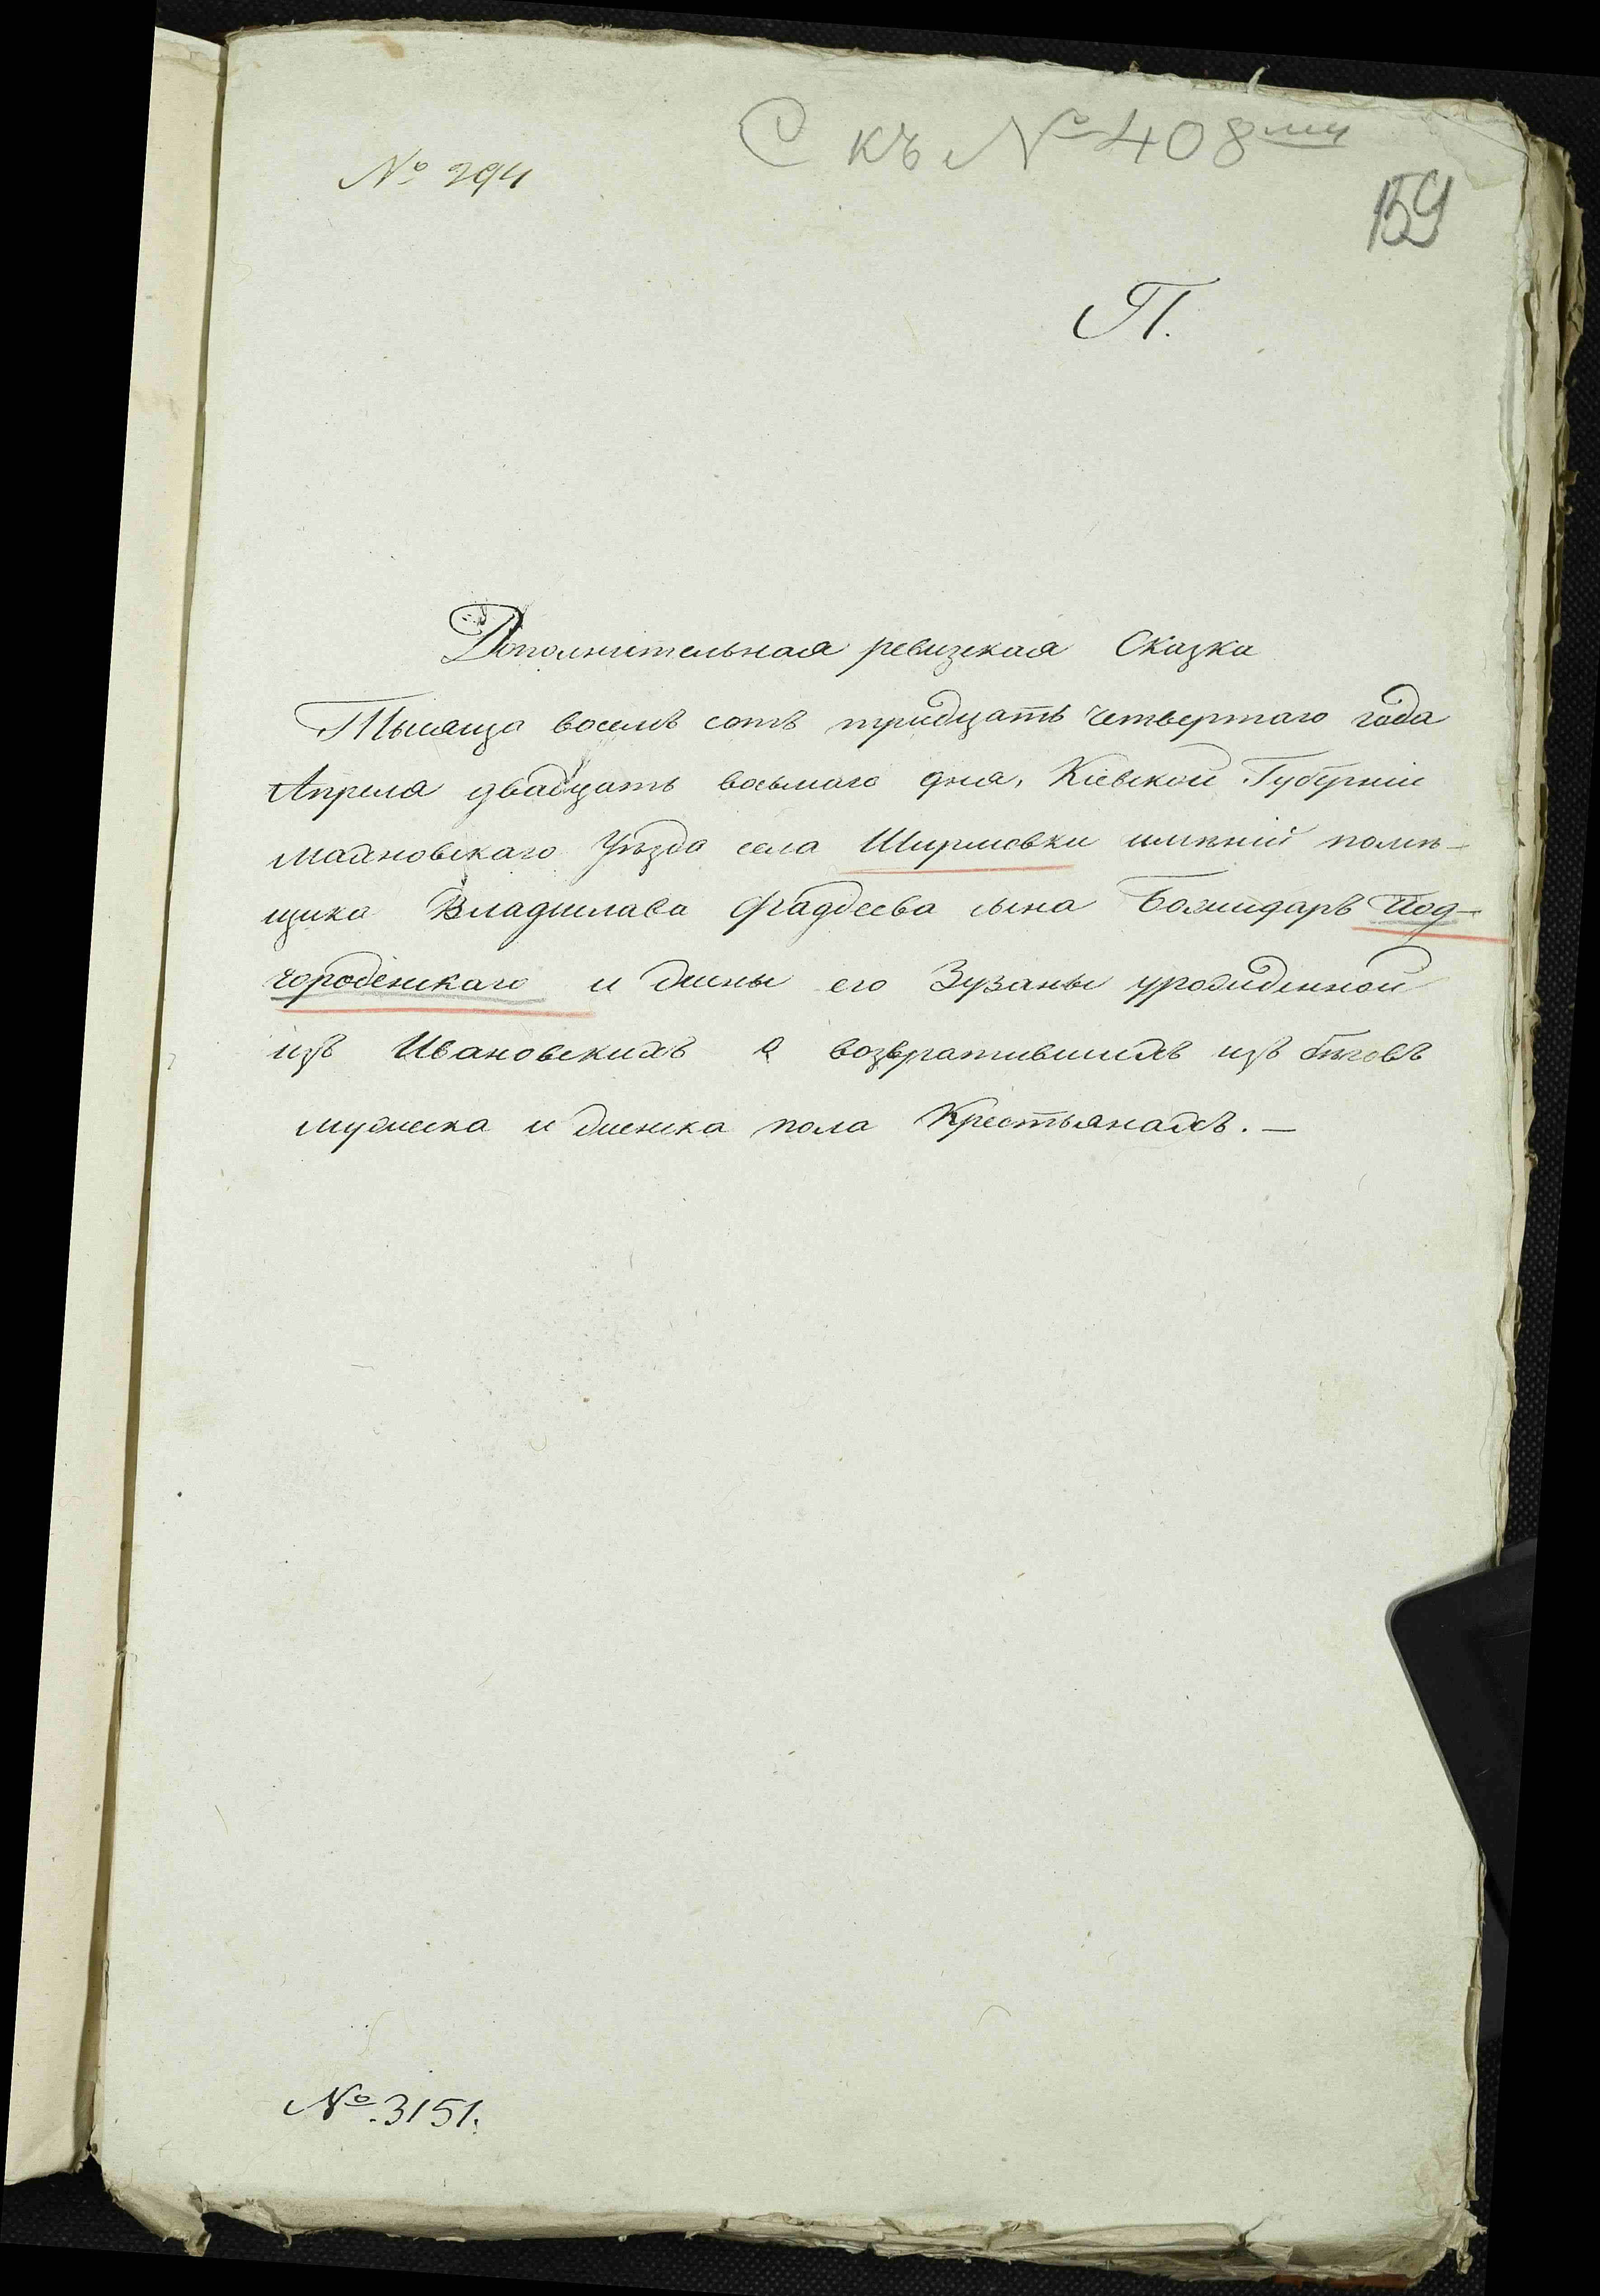 С къ № 408ми
№ 294
159
П.
Дополнительная ревизская Сказка
Тысяща восемь сотъ тридцать четвертаго года
Апреля двадцать восьмаго дня, Кіевской Губерніи
махновскаго Уѣзда села Ширмовки имѣній помѣ-
щика Владислава Фаддеева сына Божидаръ Под-
городенскаго и жены его Зузаны урожиденной
изъ Ивановскихъ о возвратившихъ изъ бѣговъ
мужеска и женска пола Крестьянахъ. —
№. 3151.